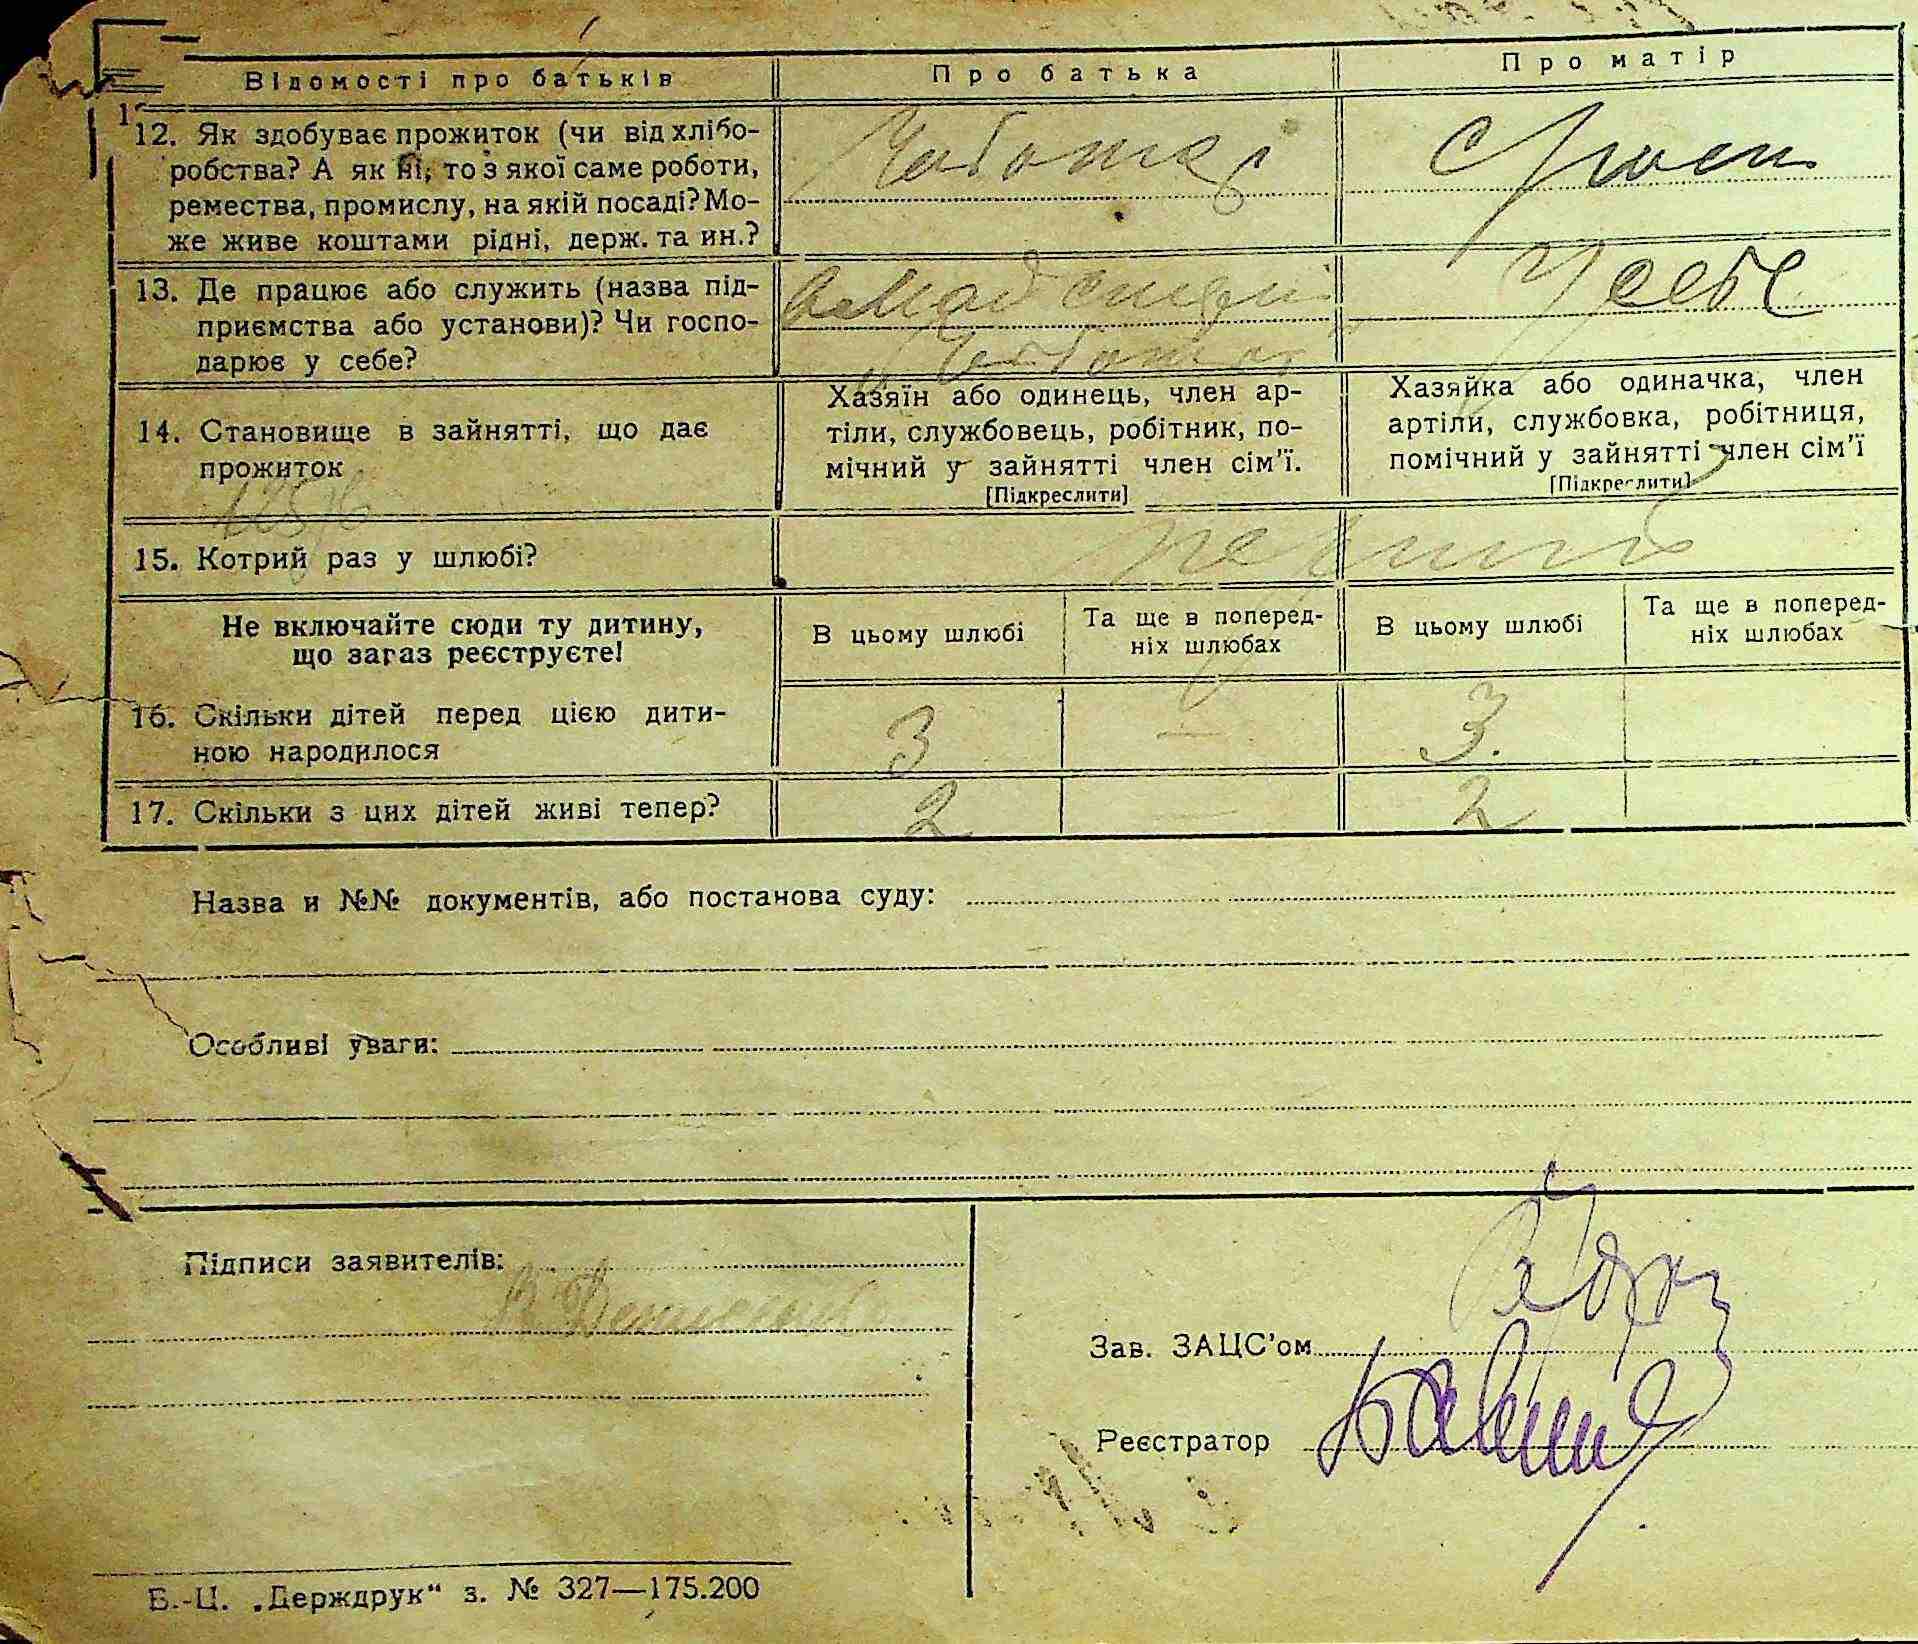 Відомості про батьків
Про батька
Про матір
12. Як здобуває прожиток (чи від хлібо-
робства? А як ні, то з якої саме роботи,
ремества, промислу, на якій посаді? Мо-
же живе коштами рідні, держ. та ин.?
13. Де працює або служить (назва під-
приємства або установи)? Чи госпо-
дарює у себе?
У себе
14. Становище в зайнятті, що дає
прожиток
Хазяїн або одинець, член ар-
тіли, службовець, робітник, по-
мічний у зайнятті член сім'ї.
[Підкреслити]
Хазяйка або одиначка, член
артіли, службовка, робітниця,
помічний у зайнятті член сім'ї
[Підкреслити]
15. Котрий раз у шлюбі?
Не включайте сюди ту дитину,
що зараз реєструєте!
В цьому шлюбі
Та ще в поперед-
ніх шлюбах
В цьому шлюбі
Та ще в поперед-
ніх шлюбах
16. Скільки дітей перед цією дити-
ною народилося
3
—
3.
17. Скільки з цих дітей живі тепер?
2
—
2
Назва и №№ документів, або постанова суду:
Особливі уваги:
Підписи заявителів:
Зав. ЗАЦС'ом
Реєстратор
Б.-Ц. „Держдрук" з. № 327—175.200